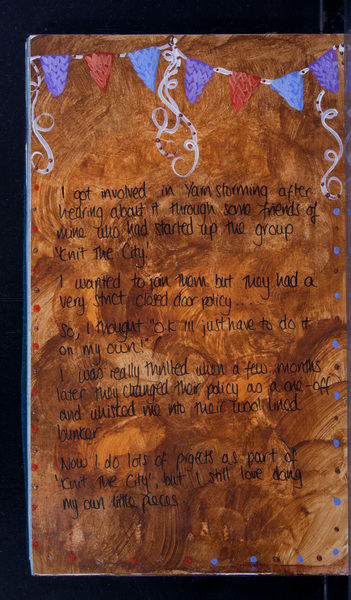 I got involved in Yarn storming after
hearing about it through some friends of
mine who had started up the group
'Knit The City.'
I wanted to join them but they had a
very strict closed door policy...
So, I thought "O.K I'll just have to do it
on my own!"
I was really thrilled when a few months
later they changed their policy as a one-off
and whisked me into their wool lined
bunker
Now I do lots of projects as part of
'Knit The City', but I still love doing
my own little pieces.